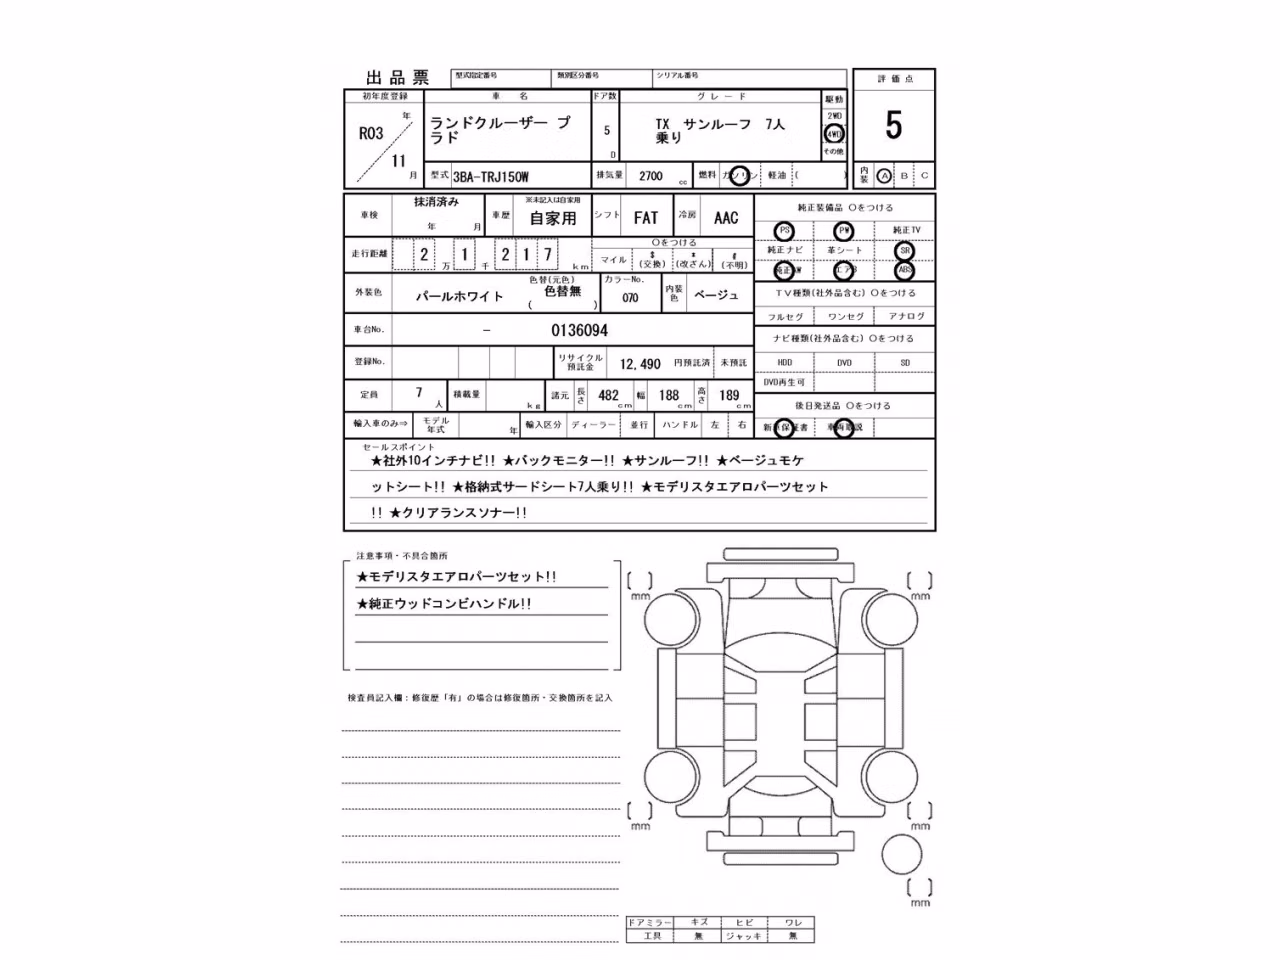 出品票 型式指定番号 類別区分番号 シリアル番号
評価点
初年度登録 車名 ドア数 グレード 駆動
R03 年 11 月
ランドクルーザー プ
ラド
5 D
TX サンルーフ 7人
乗り
2WD
4WD
その他
5
型式 3BA-TRJ150W 排気量 2700 cc 燃料 ガソリン 軽油 ( )
内装 A B C
車検 抹消済み 年 月 車歴 ※未記入は自家用 自家用 シフト FAT 冷房 AAC
純正装備品 ○をつける
PS PW 純正TV
純正ナビ 革シート SR
純正AW エアB ABS
走行距離 2 万 1 千 2 1 7 km
○をつける
マイル $ (交換) * (改ざん) # (不明)
外装色 パールホワイト 色替(元色) 色替無 ( ) カラーNo. 070 内装色 ベージュ
TV種類(社外品含む) ○をつける
フルセグ ワンセグ アナログ
車台No. - 0136094
ナビ種類(社外品含む) ○をつける
HDD DVD SD
DVD再生可
登録No. リサイクル預託金 12,490 円預託済 未預託
定員 7 人 積載量 kg 諸元 長さ 482 cm 幅 188 cm 高さ 189 cm
後日発送品 ○をつける
新車保証書 車両取説
輸入車のみ⇒ モデル年式 年 輸入区分 ディーラー 並行 ハンドル 左 右
セールスポイント
★社外10インチナビ!! ★バックモニター!! ★サンルーフ!! ★ベージュモケ
ットシート!! ★格納式サードシート7人乗り!! ★モデリスタエアロパーツセット
!! ★クリアランスソナー!!
注意事項・不具合箇所
★モデリスタエアロパーツセット!!
★純正ウッドコンビハンドル!!
検査員記入欄：修復歴「有」の場合は修復箇所・交換箇所を記入
[ ] mm
[ ] mm
[ ] mm
[ ] mm
[ ] mm
ドアミラー キズ ヒビ ワレ
工具 無 ジャッキ 無